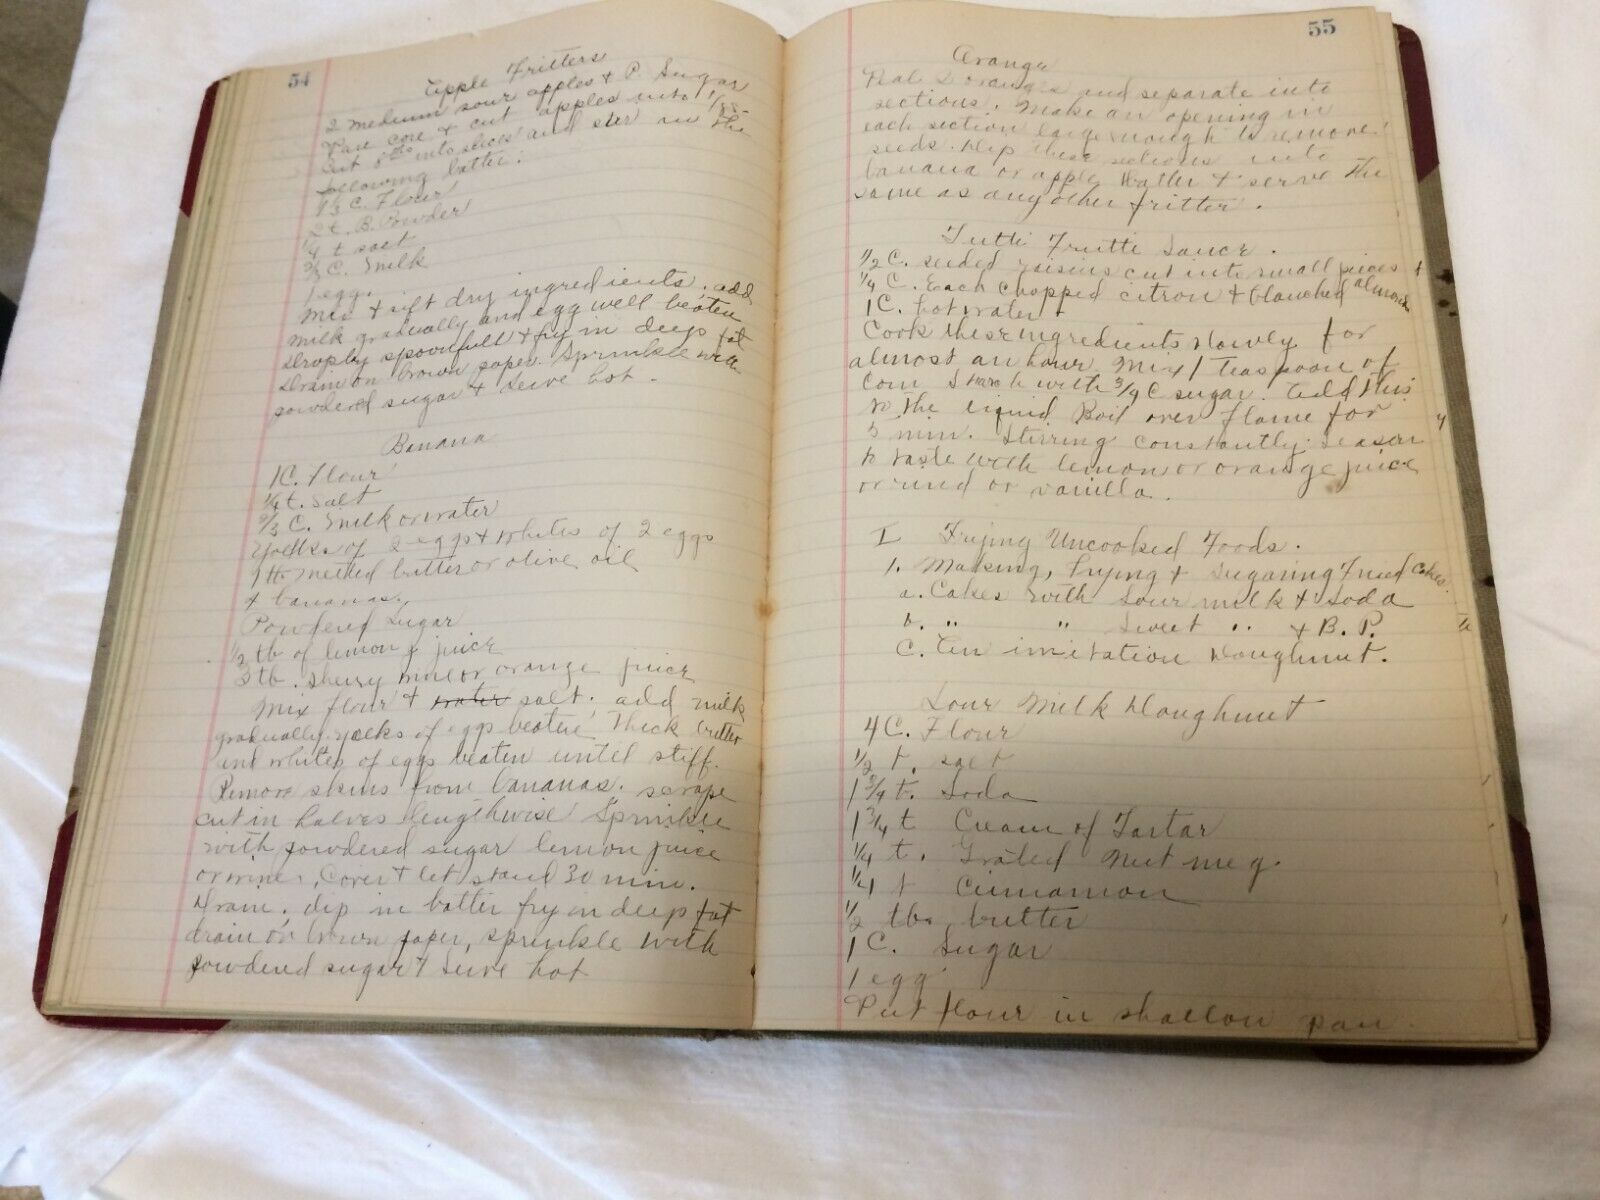 54
Apple Fritters
2 medium sour apples & P. Sugar
Pare core & cut apples into 1/8s-
Cut 8ths into slices and stir in the
following batter:
1 1/3 C. Flour
2 t. B. Powder
1/4 t salt
2/3 C. Milk
1 egg.
Mix & sift dry ingredients, add
milk gradually and egg well beaten
Drop by spoonfull & fry in deep fat
Drain on brown paper. Sprinkle with
powdered sugar & serve hot.
Banana
1 C. Flour
1/4 t. salt
2/3 C. Milk or water
Yoelks of 2 eggs & Whites of 2 eggs
1 tb melted butter or olive oil
4 bananas.
Powdered Sugar
1/2 tb of lemon juice
3 tb. sherry wine or orange juice
Mix flour & water salt. add milk
gradually. yoelks of eggs beaten thick butter
and whites of eggs beaten until stiff.
Remove skins from bananas. scrape
cut in halves lengthwise Sprinkle
with powdered sugar lemon juice
or wine, Cover & let stand 30 min.
Drain, dip in batter fry in deep fat
drain on brown paper, sprinkle with
powdered sugar & serve hot
55
Orange
Peal 2 oranges and separate into
sections. Make an opening in
each section large enough to remove
seeds. Dip these sections into
banana or apple batter & serve the
same as any other fritter.
Tutti Frutti Sauce.
1/2 C. seeded raisins cut into small pieces &
1/4 C. Each chopped citron & blanched almonds
1 C. hot water
Cook these ingredients slowly for
almost an hour. Mix 1 teaspoon of
corn starch with 3/4 C sugar. Add this
to the liquid Boil over flame for
5 min. Stirring constantly. Season
to taste with lemon or orange juice
or rind or vanilla.
I Frying Uncooked Foods.
1. Making, Frying & Sugaring Fried Cakes.
a. Cakes with Sour milk & Soda
b. " " Sweet " & B. P.
C. An imitation Doughnut.
Sour Milk Doughnut
4 C. Flour
1/2 t. salt
1 3/4 t. Soda
1 3/4 t Cream of Tartar
1/4 t. Grated Nutmeg.
1/4 t Cinnamon
1/2 tb. butter
1 C. Sugar
1 egg
Put flour in shallow pan.